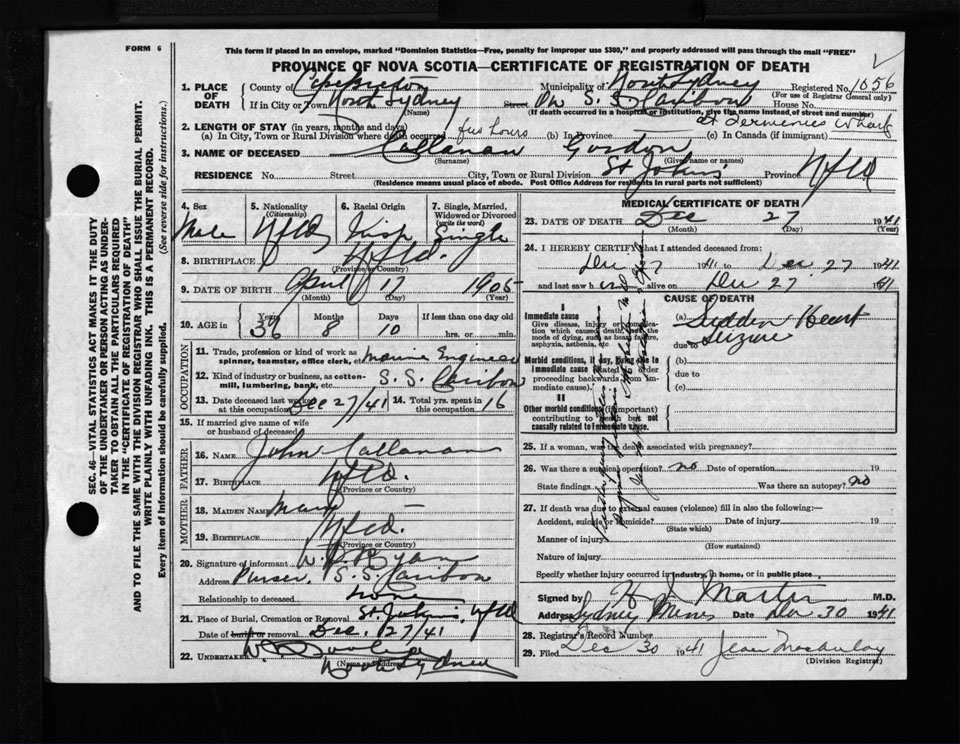 FORM 6
This form if placed in an envelope, marked "Dominion Statistics—Free, penalty for improper use $300," and properly addressed will pass through the mail "FREE"
PROVINCE OF NOVA SCOTIA—CERTIFICATE OF REGISTRATION OF DEATH
SEC. 46—VITAL STATISTICS ACT MAKES IT THE DUTY
OF THE UNDERTAKER OR PERSON ACTING AS UNDER-
TAKER TO OBTAIN ALL THE PARTICULARS REQUIRED
IN THE "CERTIFICATE OF REGISTRATION OF DEATH"
AND TO FILE THE SAME WITH THE DIVISION REGISTRAR WHO SHALL ISSUE THE BURIAL PERMIT.
WRITE PLAINLY WITH UNFADING INK. THIS IS A PERMANENT RECORD.
Every item of Information should be carefully supplied. (See reverse side for instructions.)
1. PLACE OF DEATH
County of Cape Breton Municipality of North Sydney Registered No. 1056
(For use of Registrar General only)
If in City or Town North Sydney Street On S. S. Caribou House No.
(Name) (If death occurred in a hospital or institution, give the name instead of street and number)
at Wharf
2. LENGTH OF STAY (in years, months and days)
(a) In City, Town or Rural Division where death occurred few hours (b) In Province (c) In Canada (if immigrant)
3. NAME OF DECEASED Callanan Gordon
(Surname) (Given name or names)
RESIDENCE No. Street City, Town or Rural Division St John's Province Nfld
(Residence means usual place of abode. Post Office Address for residents in rural parts not sufficient)
4. Sex Male
5. Nationality (Citizenship) Nfld
6. Racial Origin Irish
7. Single, Married, Widowed or Divorced (write the word) Single
8. BIRTHPLACE Nfld.
(Province or Country)
9. DATE OF BIRTH April 17 1905
(Month) (Day) (Year)
10. AGE in Years 36 Months 8 Days 10 If less than one day old
hrs. or min.
OCCUPATION
11. Trade, profession or kind of work as spinner, teamster, office clerk, etc. Marine Engineer
12. Kind of industry or business, as cotton-mill, lumbering, bank, etc. S. S. Caribou
13. Date deceased last worked at this occupation Dec 27/41 14. Total yrs. spent in this occupation 16
15. If married give name of wife or husband of deceased
FATHER
16. NAME John Callanan
17. BIRTHPLACE Nfld.
(Province or Country)
MOTHER
18. MAIDEN NAME Mary
19. BIRTHPLACE Nfld.
(Province or Country)
20. Signature of informant Ryan
Address Purser, S.S. Caribou
Relationship to deceased none
21. Place of Burial, Cremation or Removal St John's, Nfld
Date of burial or removal Dec. 27/41
22. UNDERTAKER
(Name and Address) North Sydney
MEDICAL CERTIFICATE OF DEATH
23. DATE OF DEATH Dec 27 1941
(Month) (Day) (Year)
24. I HEREBY CERTIFY that I attended deceased from
Dec 27 1941 to Dec. 27 1941
and last saw him alive on Dec 27 1941
CAUSE OF DEATH
I
Immediate cause
Give disease, injury or complication which caused death, not the mode of dying, such as heart failure, asphyxia, asthenia, etc
(a) Sudden Heart Seizure
due to
Morbid conditions, if any, giving rise to immediate cause (stated in order proceeding backwards from immediate cause).
(b)
due to
(c)
II
Other morbid conditions (if important) contributing to death but not causally related to immediate cause.
25. If a woman, was the death associated with pregnancy?
26. Was there a surgical operation? no Date of operation 19
State findings Was there an autopsy? no
27. If death was due to external causes (violence) fill in also the following:—
Accident, suicide or homicide? Date of injury 19
(State which)
Manner of injury
(How sustained)
Nature of injury
Specify whether injury occurred in industry, in home, or in public place
Signed by H. J. Martin M.D.
Address Sydney Mines Date Dec 30 1941
28. Registrar's Record Number
29. Filed Dec 30 1941 Jean Macaulay
(Division Registrar)